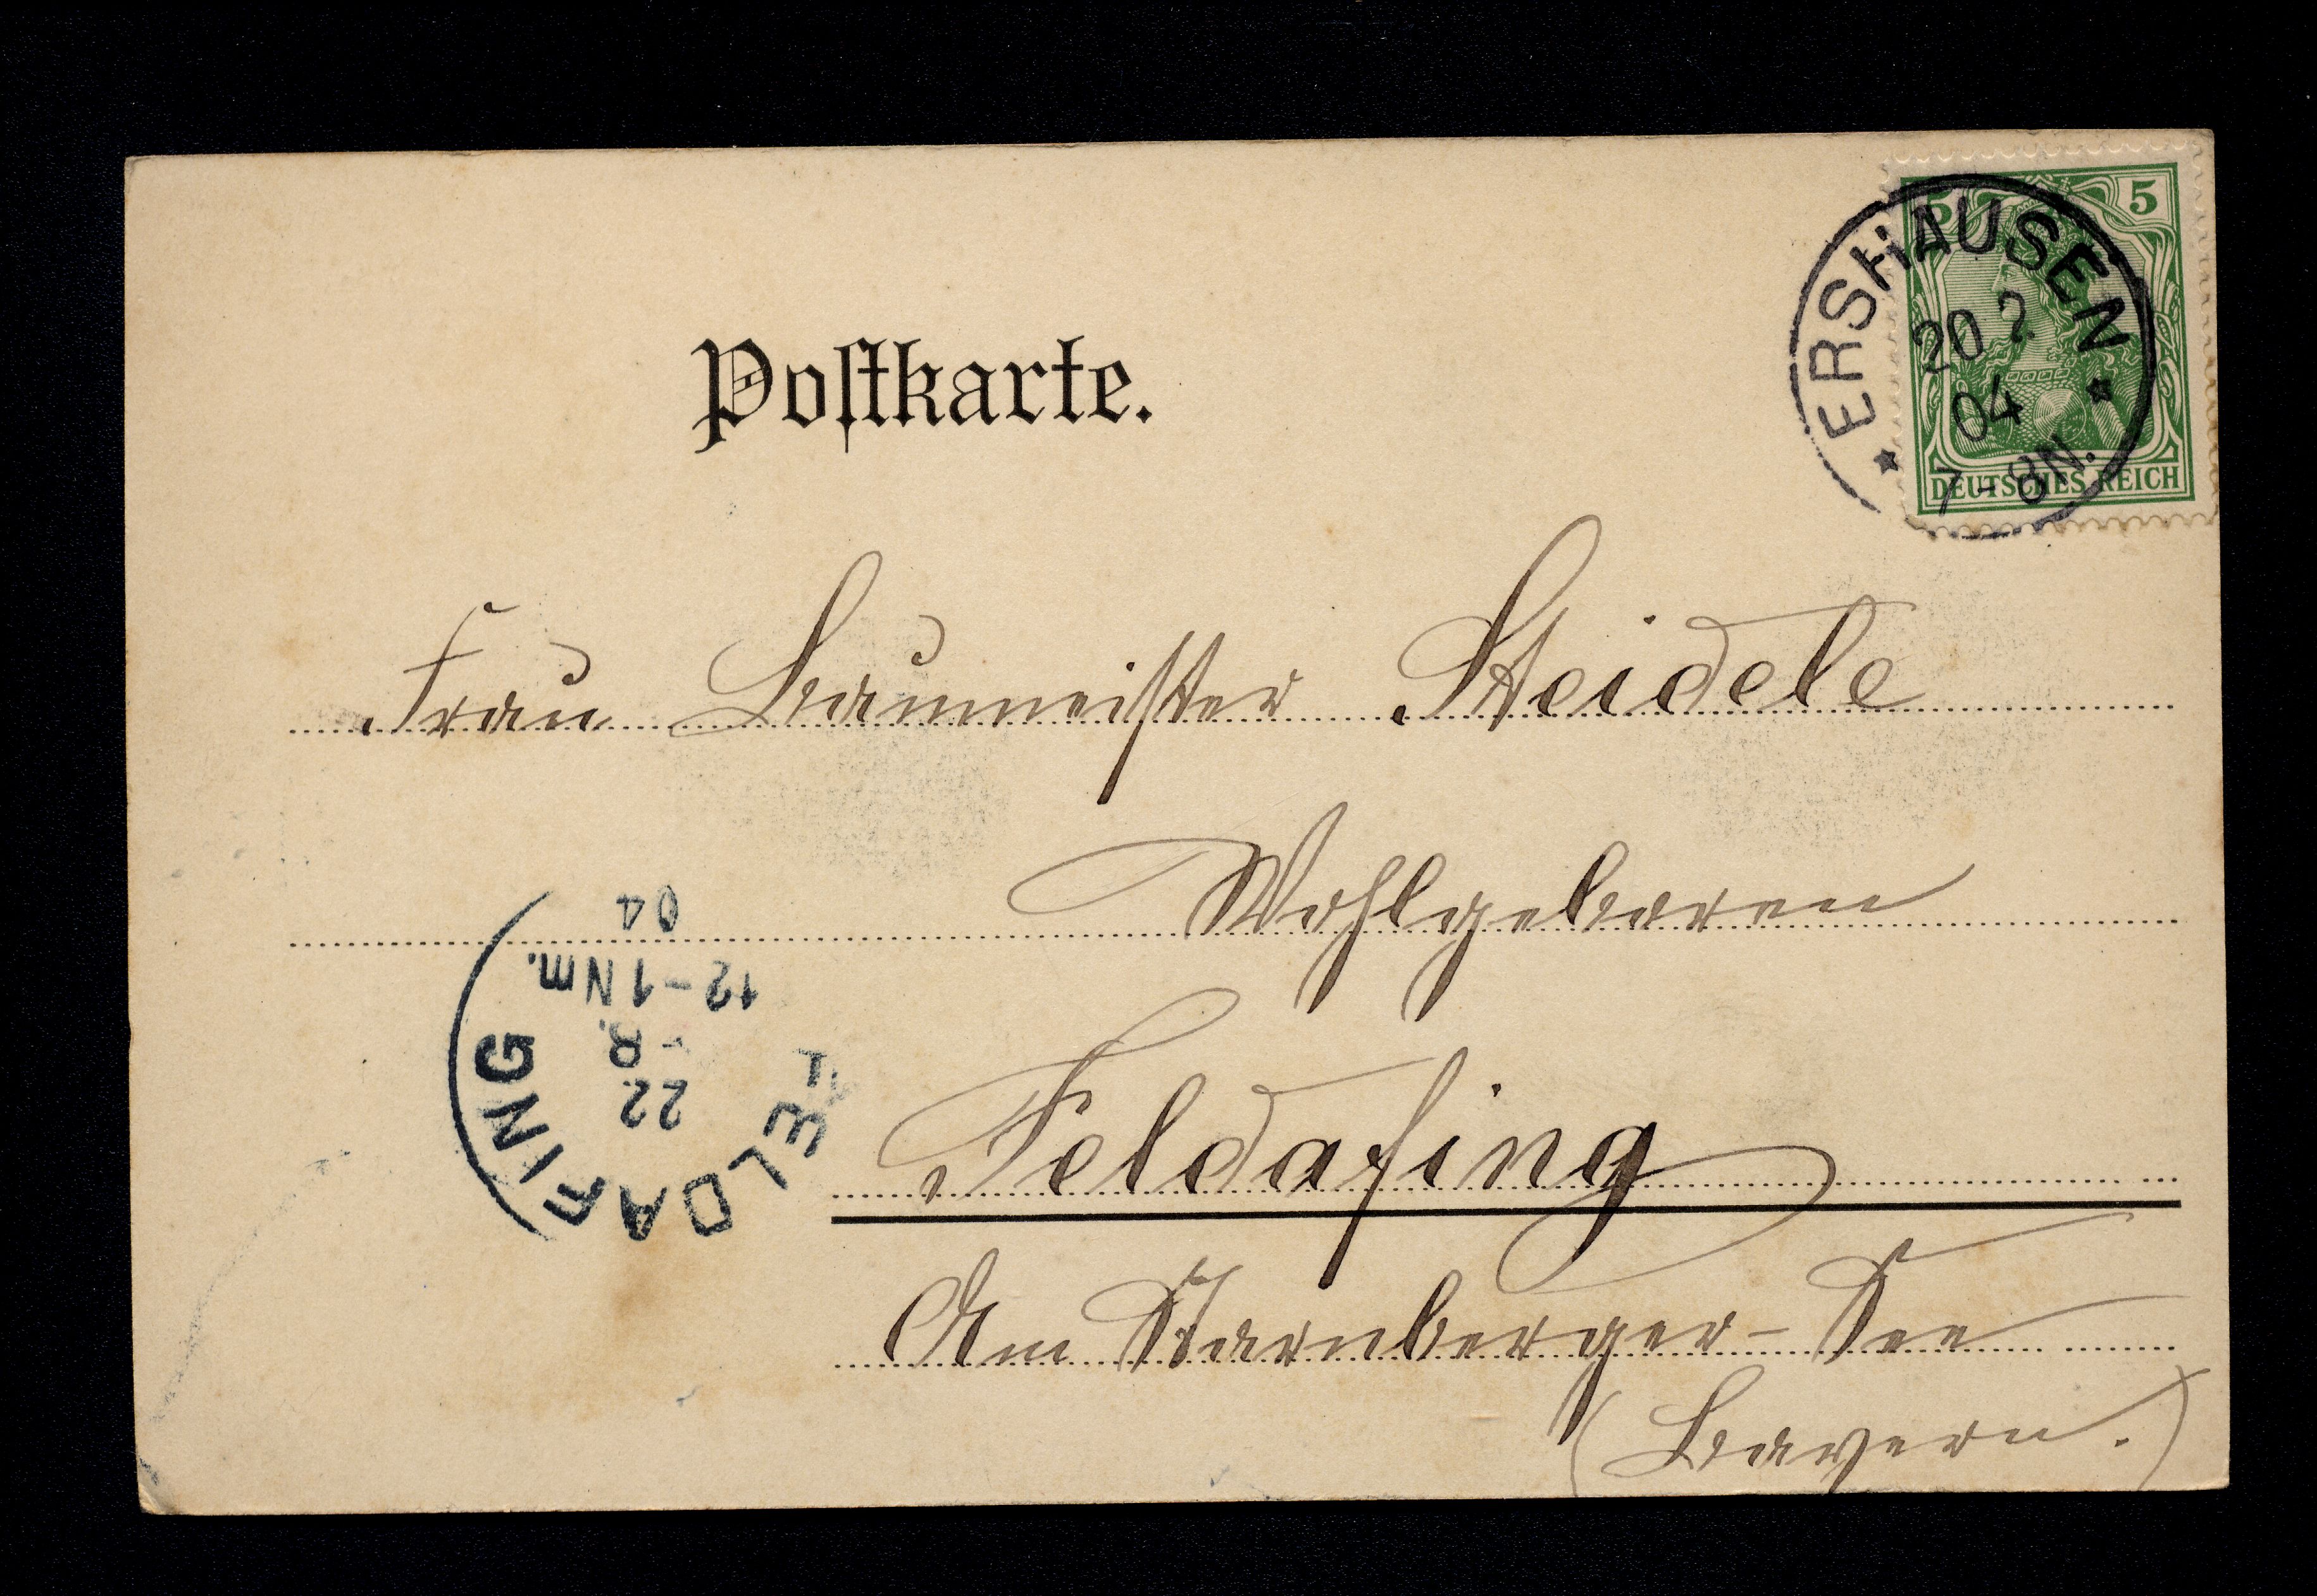 Postkarte.
5 5
DEUTSCHES REICH
ERSHAUSEN
20 2
04
7-8N.
Frau Baumeister Steidele
Wohlgeboren
Feldafing
Am Starnberger-See
(Bayern.)
FELDAFING
22
12-1Nm.
04